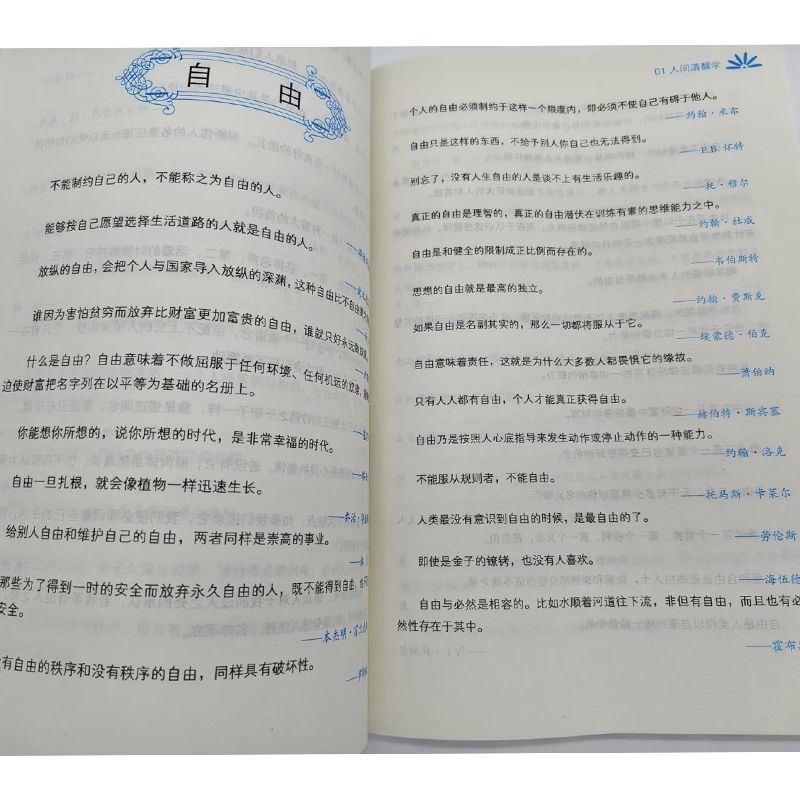 自 由
不能制约自己的人，不能称之为自由的人。
能够按自己愿望选择生活道路的人就是自由的人。
放纵的自由，会把个人与国家导入放纵的深渊，这种自由比不自由
谁因为害怕贫穷而放弃比财富更加富贵的自由，谁就只好永远
什么是自由？自由意味着不做屈服于任何环境、任何机运的奴隶，
迫使财富把名字列在以平等为基础的名册上。
你能想你所想的，说你所想的时代，是非常幸福的时代。
自由一旦扎根，就会像植物一样迅速生长。
——乔治·
给别人自由和维护自己的自由，两者同样是崇高的事业。
那些为了得到一时的安全而放弃永久自由的人，既不能得到自由，也
安全。
——本杰明·富兰
有自由的秩序和没有秩序的自由，同样具有破坏性。
01 人间清醒学
个人的自由必须制约于这样一个限度内，即必须不使自己有碍于他人。
——约翰·米尔
自由只是这样的东西，不给予别人你自己也无法得到。
——E.B.怀特
别忘了，没有人生自由的人是谈不上有生活乐趣的。
——托·穆尔
真正的自由是理智的，真正的自由潜伏在训练有素的思维能力之中。
——约翰·杜威
自由是和健全的限制成正比例而存在的。
——韦伯斯特
思想的自由就是最高的独立。
——约翰·费斯克
如果自由是名副其实的，那么一切都将服从于它。
——埃蒙德·伯克
自由意味着责任，这就是为什么大多数人都畏惧它的缘故。
——萧伯纳
只有人人都有自由，个人才能真正获得自由。
——赫伯特·斯宾塞
自由乃是按照人心底指导来发生动作或停止动作的一种能力。
——约翰·洛克
不能服从规则者，不能自由。
——托马斯·卡莱尔
人类最没有意识到自由的时候，是最自由的了。
——劳伦斯
即使是金子的镣铐，也没有人喜欢。
——海伍德
自由与必然是相容的。比如水顺着河道往下流，非但有自由，而且也有必
然性存在于其中。
——霍布